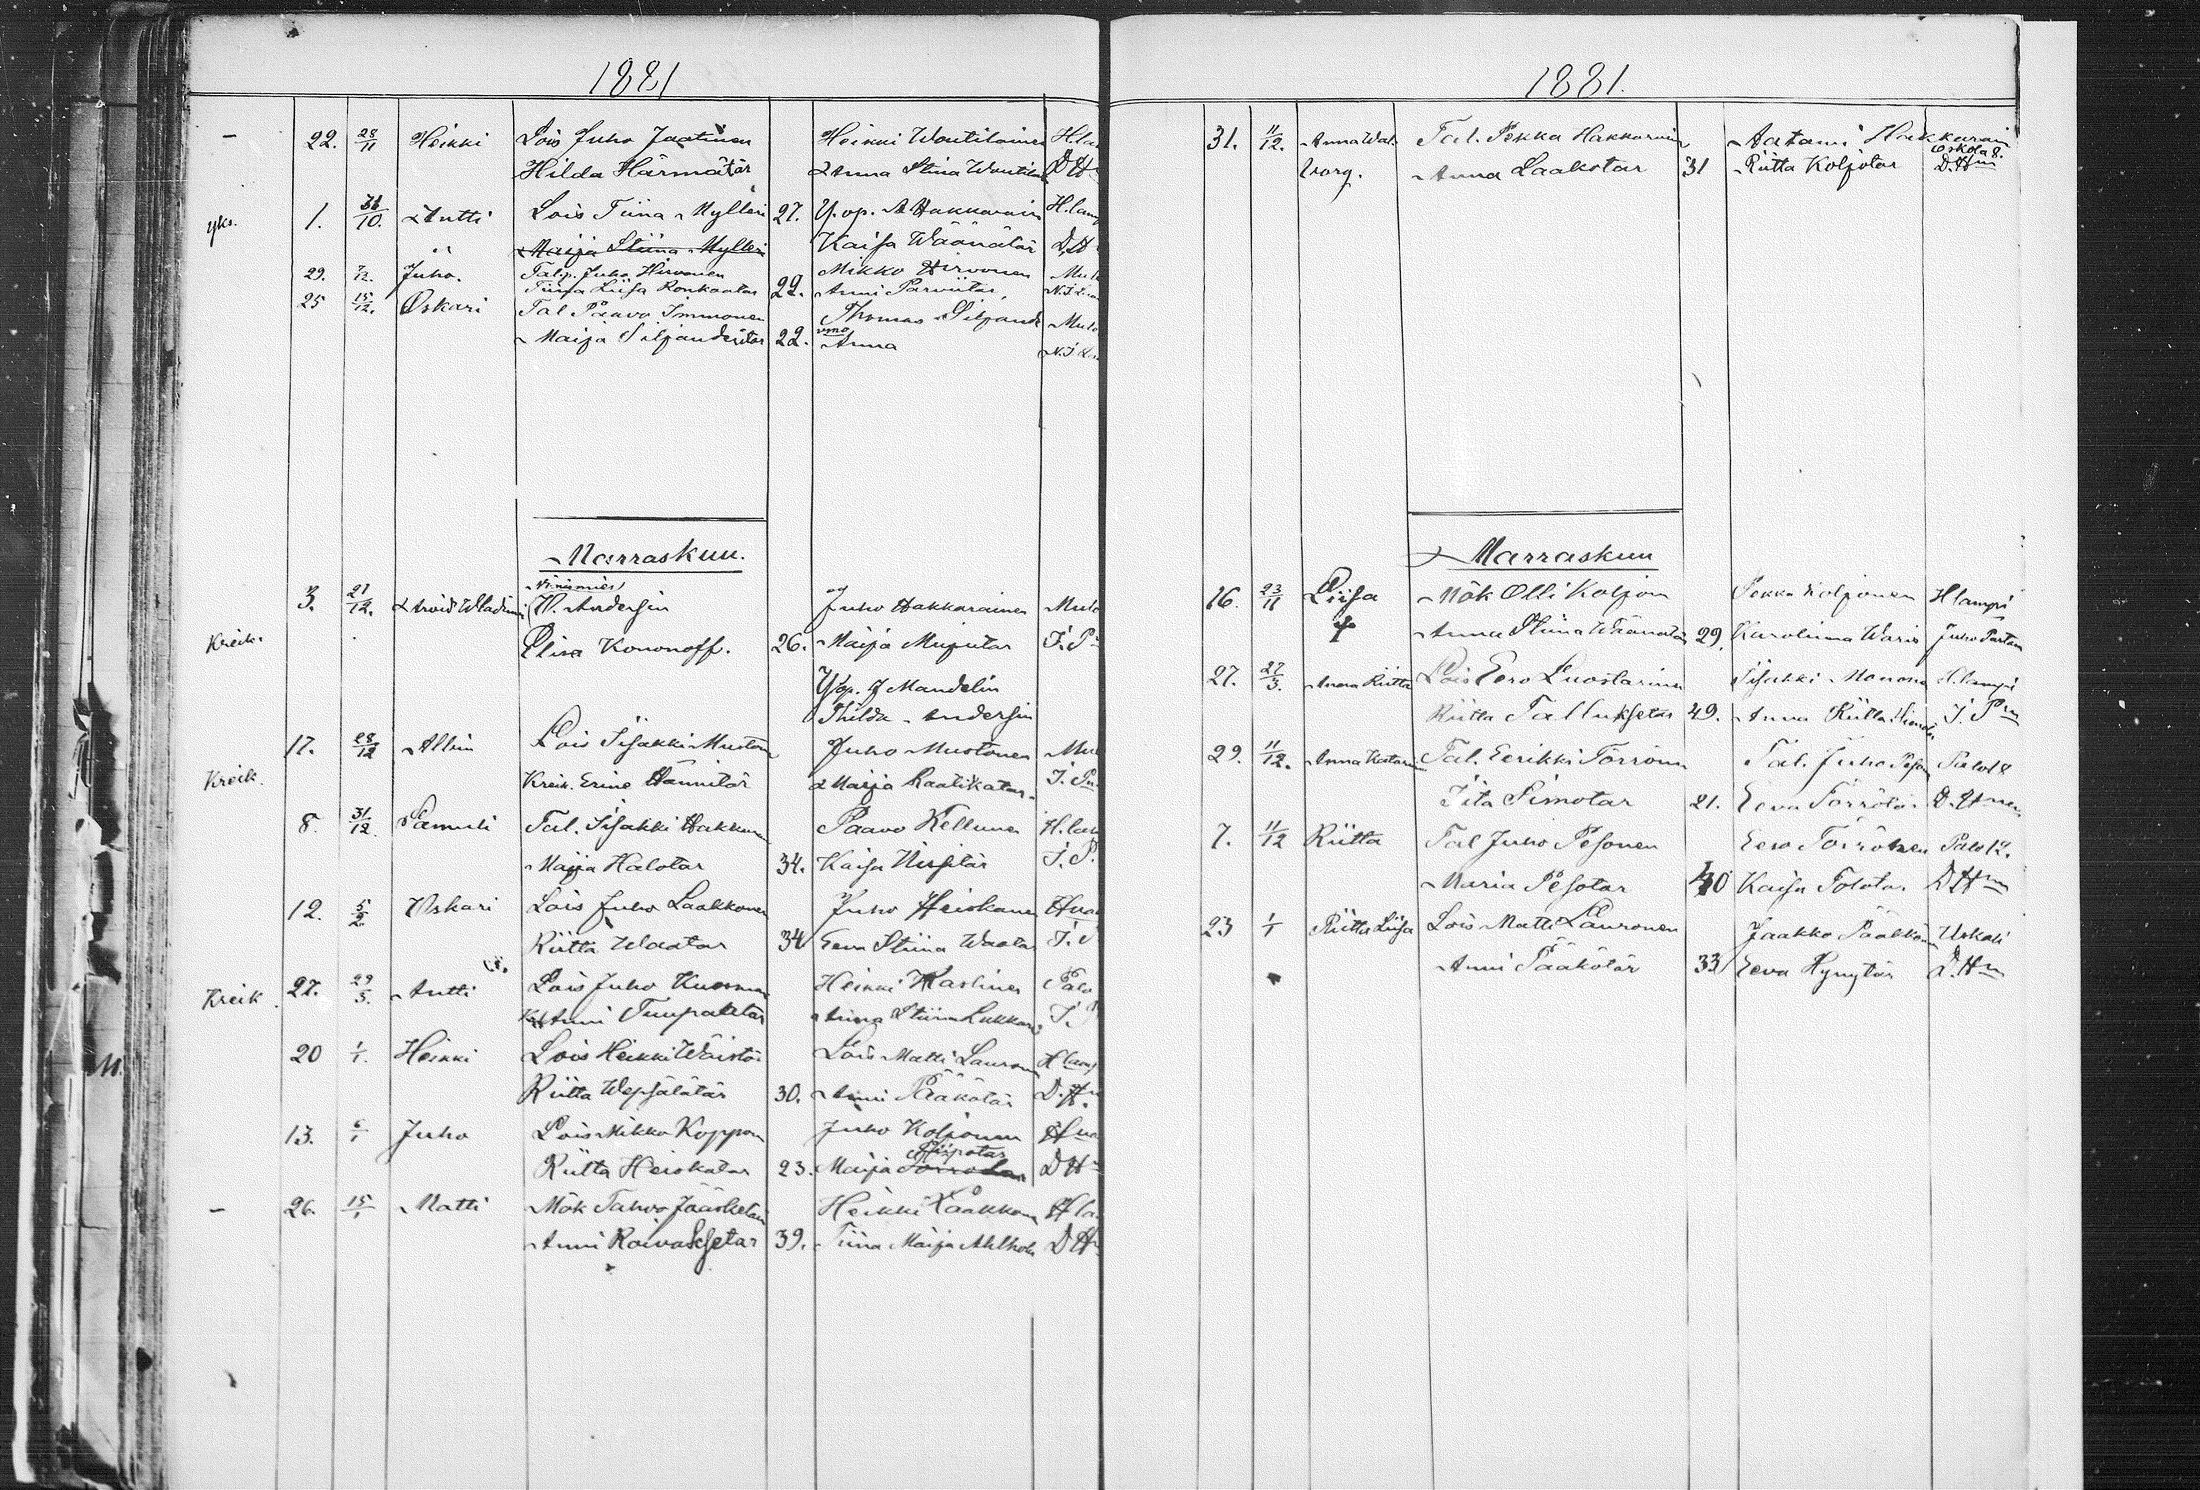 1881
– 22. 28/11 Heikki Lois Juho Jaatinen Heikki Woutilainen H.la
Hilda Härmätär Anna Stiina Woutila D.H
yks. 1. 31/10. Antti Lois Tiina Mylleri 27. Y.op. A Hakkarain H.lam
Maija Stiina Mylleri Kaisa Wäänätär D.H
29. 7/12. Juho. Talp. Juho Hirvonen Mikko Hirvonen Mulo
Tiina Liisa Ronkaatar 22. Anni Parviitar N.J.
25 15/12. Oskari Tal Paavo Immonen Thomas Siljande Mulo
Maija Siljanderitar 22. vmo Anna N.J.
Marraskuu.
Nimismies
3. 21/12. Arvid Wladimi W. Andersin Juho Hakkarainen Mulo
Kreik. Elisa Kononoff. 26. Maija Mujutar J.P
Y.op. J Mandelin
Thilda Andersin
17. 28/12 Albin Lois Iisakki Muston Juho Mustonen Mul
Kreik. Kreik. Erine Hännitär Maija Laatikatar J.P
8. 31/12. Samuli Tal. Iisakki Hakkara Paavo Kellunen H.lam
Maija Halotar 34. Kaisa J.P.
12. 5/2. Oskari Lois Juho Laakkonen Juho Heiskanen Hua
Riitta Waatar 34 Eeva Stiina Waatar J.P
Kreik. 27. 29/3. Antti Lois Juho Kuosman Heikki Karhinen Palo
Anni Timpatatar Anna Stiina Lukkar J.P
20 1/1. Heikki Lois Heikki Wäistö Lois Matti Lauronen H lam
Riitta Wepsälätär 30. Anni Pääkötär D.H
13. 6/1 Juho Lois Mikko Koppon Juho Koljonen Hua
Piipotar
Riitta Heiskatar 23. Maija Torrotar D H
– 26. 15/1 Matti Mök Tahvo Jääskeläi Heikki Laakkon H la
Anni Roivaksetar 39. Tiina Maija Ahlholm D H
1881.
31. 11/12. Anna Wal- Tal. Pekka Hakkarain Aatami Hakkarain
Uskola 8.
borg. Anna Laakotar 31 Riitta Koljotar D.Hn
Marraskuu
16. 23/11 Liisa Mök Olli Koljon Pekka Koljonen H lampi
Anna Stiina Wäänätär 29. Karoliina Waris Juho Partan
27. 27/3. Anna Riitta Lois Eero Luostarinen Iisakki Monona H. lampi
Riitta Talluksetar 49. Anna Riitta J. Pn
29. 11/12. Anna Katarin Tal. Eerikki Törrönen Tal. Juho Peson Palo 18
Iita Simotar 21. Eeva Törrötär D.Hnen
7. 11/12 Riitta Tal Juho Pesonen Eero Törrönen Palo 12.
Maria Pesotar 40 Kaisa Tolotar D.Hn
23 1/1 Riitta Liisa Lois Matti Lauronen Jaakko Pääkkön Uskali
Anni Pääkötär 33 Eeva Hynytär D.Hn